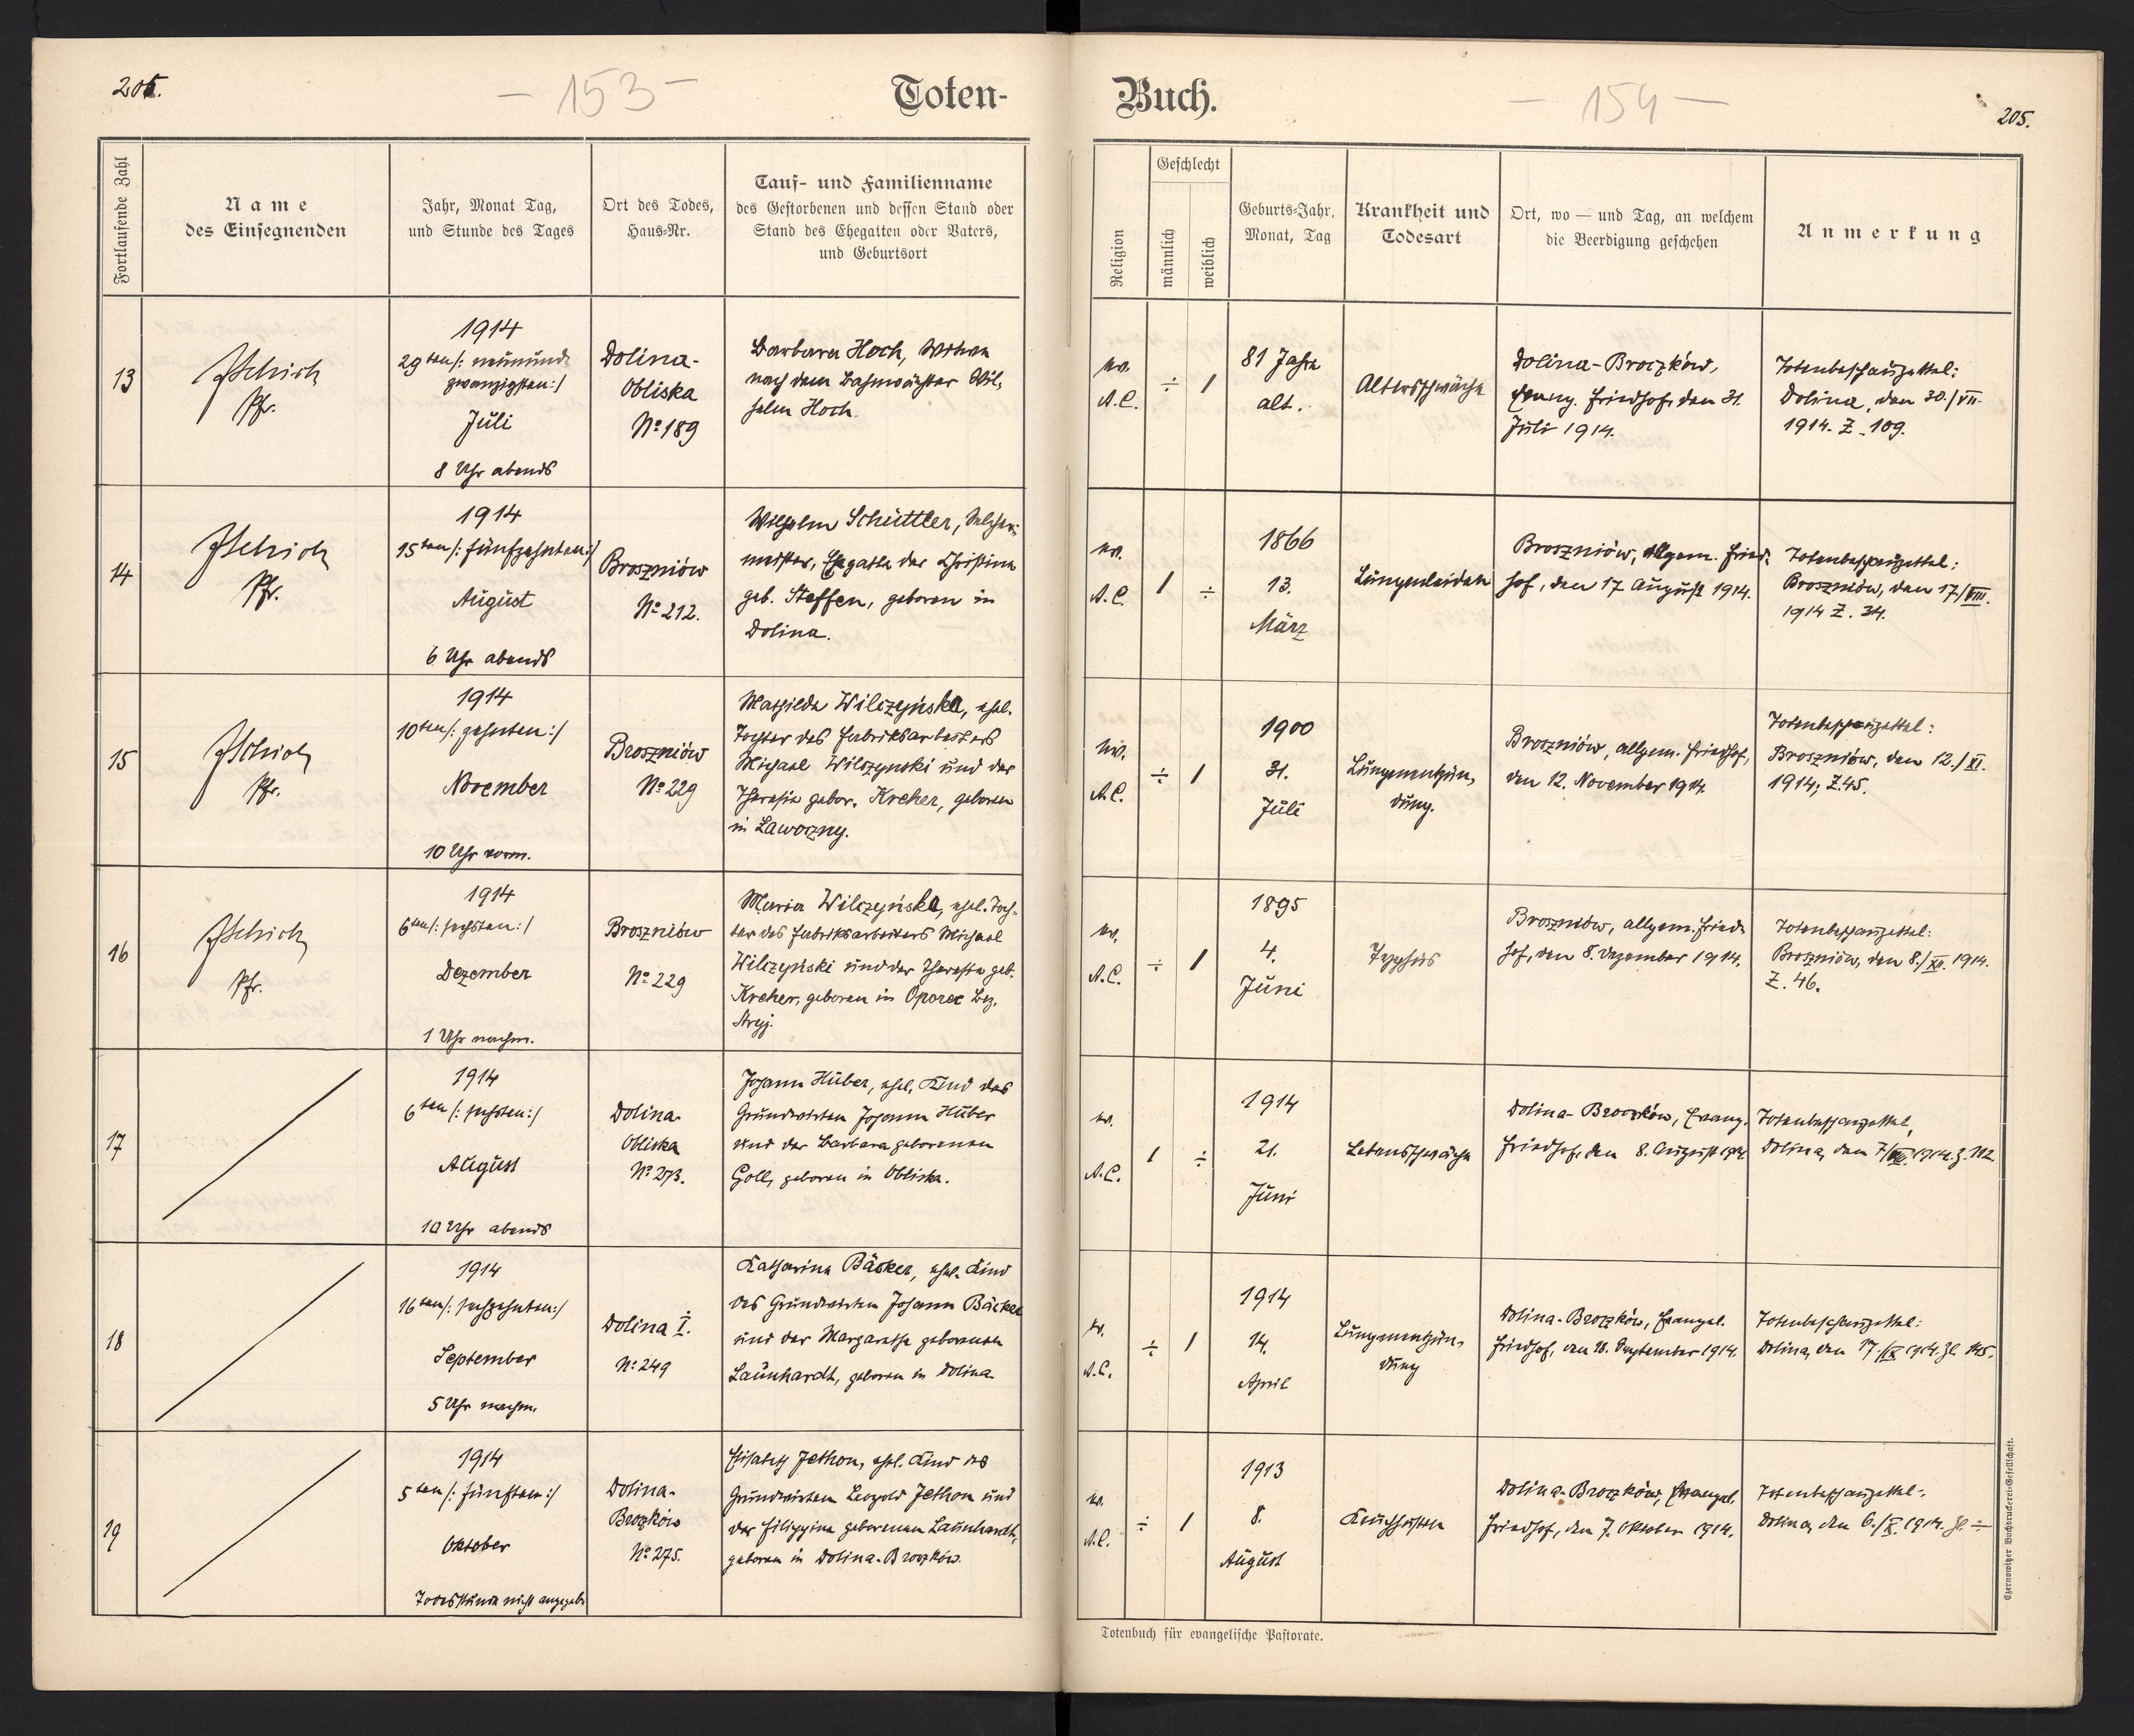 204.
— 153 —
Toten-
Fortlaufende Zahl
Name
des Einsegnenden
Jahr, Monat Tag,
und Stunde des Tages
Ort des Todes,
Haus-Nr.
Tauf- und Familienname
des Gestorbenen und dessen Stand oder
Stand des Ehegatten oder Vaters,
und Geburtsort
13
Pfr.
1914
29ten /: neunund-
zwanzigsten :/
Juli
8 Uhr abends
Dolina-
Obliska
No 189
Barbara Hoch, Witwe
nach dem Bahnwächter Wil-
helm Hoch.
14
Pfr.
1914
15ten /: fünfzehnten :/
August
6 Uhr abends
Broszniów
No 212.
Wilhelm Schüttler,
meister, Ehegatte der Christina
geb. Steffen, geboren in
Dolina.
15
Pfr.
1914
10ten /: zehnten :/
November
10 Uhr vorm.
Broszniów
No 229
Mathilde Wilczyńska, ehel.
Tochter des Fabriksarbeiters
Michael Wilczynski und der
Theresia gebor. Kreher, geboren
in Lawoczny.
16
Pfr.
1914
6ten /: sechsten :/
Dezember
1 Uhr nachm.
Broszniów
No 229
Maria Wilczyńska, ehel. Toch-
ter des Fabriksarbeiters Michael
Wilczyński und der Theresia geb.
Kreher, geboren in Oporec Bez.
Stryj.
17
1914
6ten /: sechsten :/
August
10 Uhr abends
Dolina-
Obliska
No 273.
Johann Huber, ehel. Kind des
Grundwirten Johann Huber
und der Barbara geborenen
Goll, geboren in Obliska.
18
1914
16ten /: sechzehnten :/
September
5 Uhr nachm.
Dolina I.
No 249
Katharina Bäcker, ehel. Kind
des Grundwirten Johann Bäcker
und der Margarethe geborenen
Launhardt, geboren in Dolina
19
1914
5ten /: fünften :/
Oktober
Todesstunde nicht angegeben
Dolina-
Broczków
No 275.
Elisabeth Jethon, ehel. Kind des
Grundwirten Leopold Jethon und
der Filippine geborenen Launhardt,
geboren in Dolina-Broczków.
Buch.
— 154 —
205.
Religion
Geschlecht
männlich
weiblich
Geburts-Jahr,
Monat, Tag
Krankheit und
Todesart
Ort, wo — und Tag, an welchem
die Beerdigung geschehen
Anmerkung
ev.
A.C.
÷
1
81 Jahre
alt.
Altersschwäche
Dolina-Broczków,
Evang. Friedhof, den 31.
Juli 1914.
Totenbeschauzettel:
Dolina, den 30./VII.
1914. Z. 109.
ev.
A.C.
1
÷
1866
13.
März
Lungenleiden
Broszniów, allgem. Fried-
hof, den 17 August 1914.
Totenbeschauzettel:
Broszniów, den 17./VIII.
1914 Z. 34.
ev.
A.C.
÷
1
1900
31.
Juli
Lungenentzün-
dung.
Broszniów, allgem. Friedhof,
den 12. November 1914.
Totenbeschauzettel:
Broszniów, den 12./XI.
1914; Z.45.
ev.
A.C.
÷
1
1895
4.
Juni
Typhus
Broszniów, allgem. Fried-
hof, den 8. Dezember 1914.
Totenbeschauzettel:
Broszniów, den 8./XII. 1914.
Z. 46.
ev.
A.C.
1
÷
1914
21.
Juni
Lebensschwäche
Dolina-Broczków, Evang.
Friedhof, den 8. August 1914.
Totenbeschauzettel,
Dolina, den 7/VIII. 1914. Z. 112.
ev.
A.C.
÷
1
1914
14.
April
Lungenentzün-
dung
Dolina-Broczków, Evangel.
Friedhof, den 18. September 1914.
Totenbeschauzettel:
Dolina, den 17./IX 1914. Zl. 145.
ev.
A.C.
÷
1
1913
8.
August
Keuchhusten
Dolina-Broczków, Evangel.
Friedhof, den 7. Oktober 1914.
Totenbeschauzettel:
Dolina, den 6./X. 1914. Zl. ÷
Totenbuch für evangelische Pastorate.
Czernowitzer Buchdruckerei-Gesellschaft.